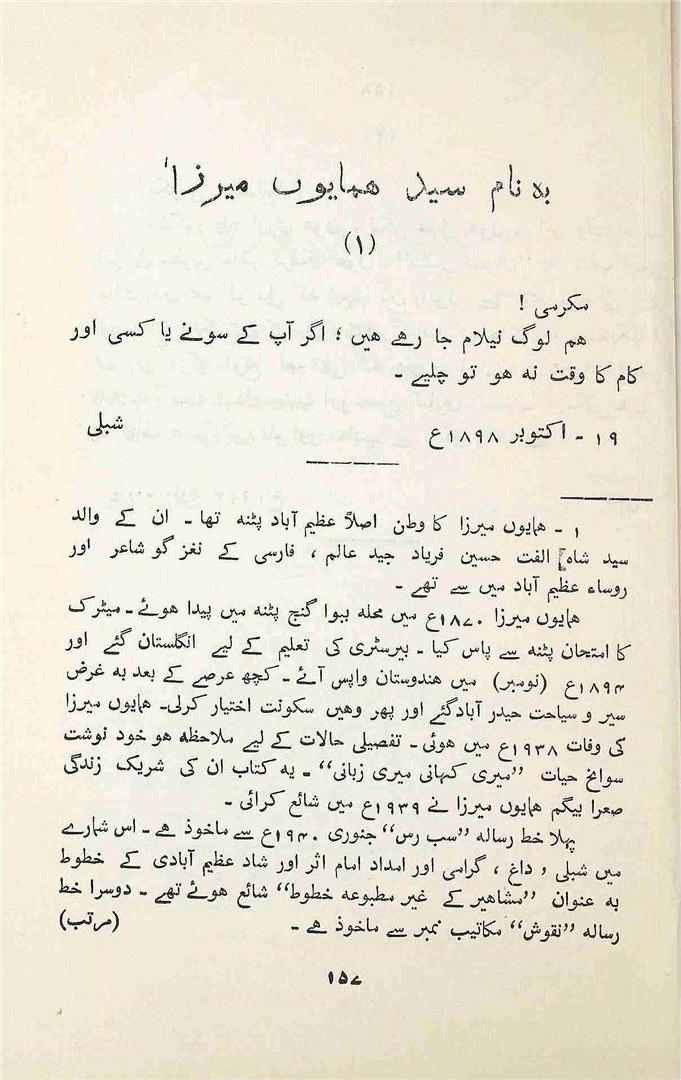 به نام سید همایوں میرزا¹
(۱)
مکرمی !
هم لوگ نیلام جا رہے هیں ؛ اگر آپ کے سونے یا کسی اور
کام کا وقت نہ ھو تو چلیے ۔
۱۹ ۔ اکتوبر ۱۸۹۸ع شبلی
۱ ۔ همایوں میرزا کا وطن اصلاً عظیم آباد پٹنہ تھا ۔ ان کے والد
سید شاہ الفت حسین فریاد جید عالم ، فارسی کے نغز گو شاعر اور
روساء عظیم آباد میں سے تھے ۔
همایوں میرزا ۱۸۷۰ع میں محلہ ببوا گنج پٹنہ میں پیدا ھوئے ۔ میٹرک
کا امتحان پٹنہ سے پاس کیا ۔ بیرسٹری کی تعلیم کے لیے انگلستان گئے اور
۱۸۹۴ع (نومبر) میں ھندوستان واپس آئے ۔ کچھ عرصے کے بعد بہ غرض
سیر و سیاحت حیدر آباد گئے اور پھر وھیں سکونت اختیار کرلی۔ همایوں میرزا
کی وفات ۱۹۳۸ع میں ھوئی ۔ تفصیلی حالات کے لیے ملاحظہ ھو خود نوشت
سوانخ حیات ”میری کہانی میری زبانی“ ۔ یہ کتاب ان کی شریک زندگی
صغرا بیگم همایوں میرزا نے ۱۹۳۹ع میں شائع کرائی ۔
پہلا خط رسالہ ”سب رس“ جنوری ۱۹۴۰ع سے ماخوذ ھے ۔ اس شمارے
میں شبلی ، داغ ، گرامی اور امداد امام اثر اور شاد عظیم آبادی کے خطوط
بہ عنوان ”مشاھیر کے غیر مطبوعہ خطوط“ شائع ھوئے تھے ۔ دوسرا خط
رسالہ ”نقوش“ مکاتیب نمبر سے ماخوذ ھے ۔ (مرتب)
۱۵۷